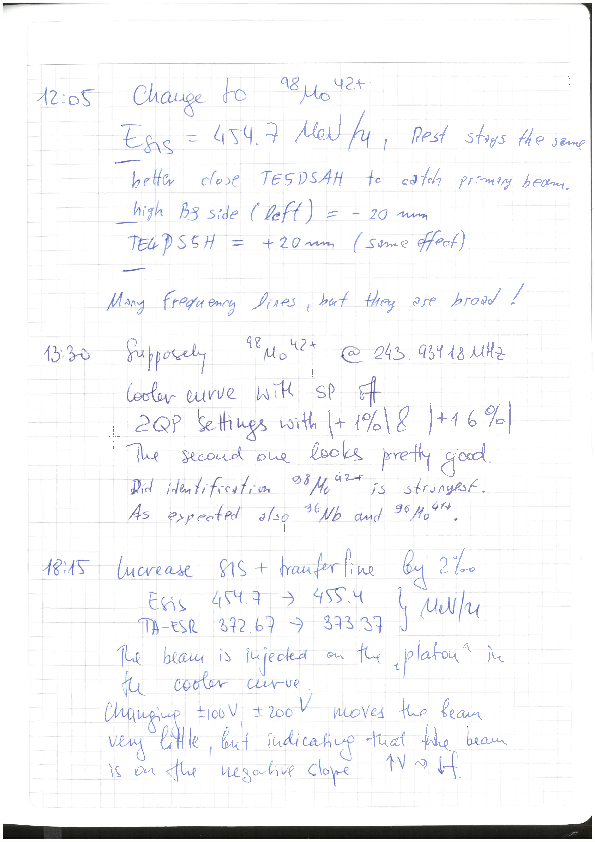 12:05 Change to ⁹⁸Mo⁴²⁺
E_SIS = 454.7 MeV/u, Rest stays the same
better close TE5DSAH to catch primary beam.
high Bρ side (left) = - 20 mm
TE4DS5H = +20 mm (same effect)
Many frequency lines, but they are broad!
13:30 Supposely ⁹⁸Mo⁴²⁺ @ 243.93418 MHz
Cooler curve with SP off
2QP Settings with |+1%| & |+1.6%|
The second one looks pretty good.
Did identification ⁹⁸Mo⁴²⁺ is strongest.
As expected also ⁹⁶Nb and ⁹⁶Mo⁴¹⁺.
18:15 Increase SIS + tranferline by 2‰
Esis 454.7 → 455.4
TA-ESR 372.67 → 373.37 } MeV/u
The beam is injected on the „platon“ in
the cooler curve.
Changing ±100V, ±200V moves the beam
very little, but indicating that the beam
is on the negative slope ↑V → ↓f.